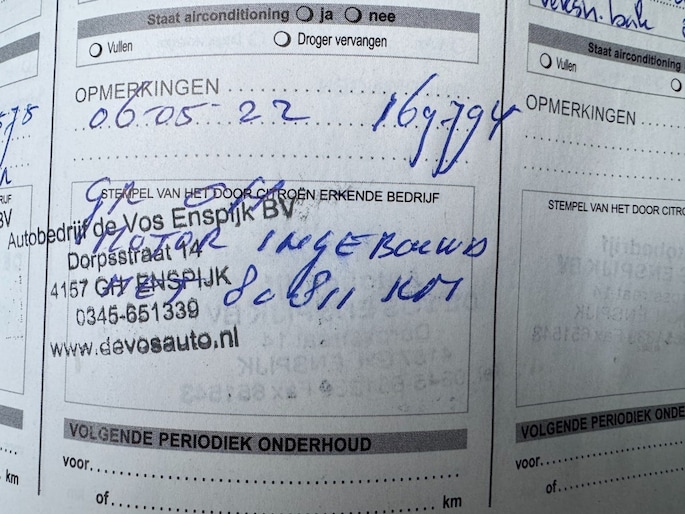 Staat airconditioning ja nee
Vullen Droger vervangen
OPMERKINGEN
06-05-22 169794
STEMPEL VAN HET DOOR CITROËN ERKENDE BEDRIJF
Autobedrijf de Vos Enspijk BV
MOTOR INGEBOUWD
Dorpsstraat 14
4157 GH ENSPIJK
MET 80.811 KM
0345-651339
www.devosauto.nl
VOLGENDE PERIODIEK ONDERHOUD
voor
of km
km
Staat airconditioning
Vullen
OPMERKINGEN
STEMPEL VAN HET DOOR CITRO
VOLGENDE PERIODIEK ONDE
voor
of